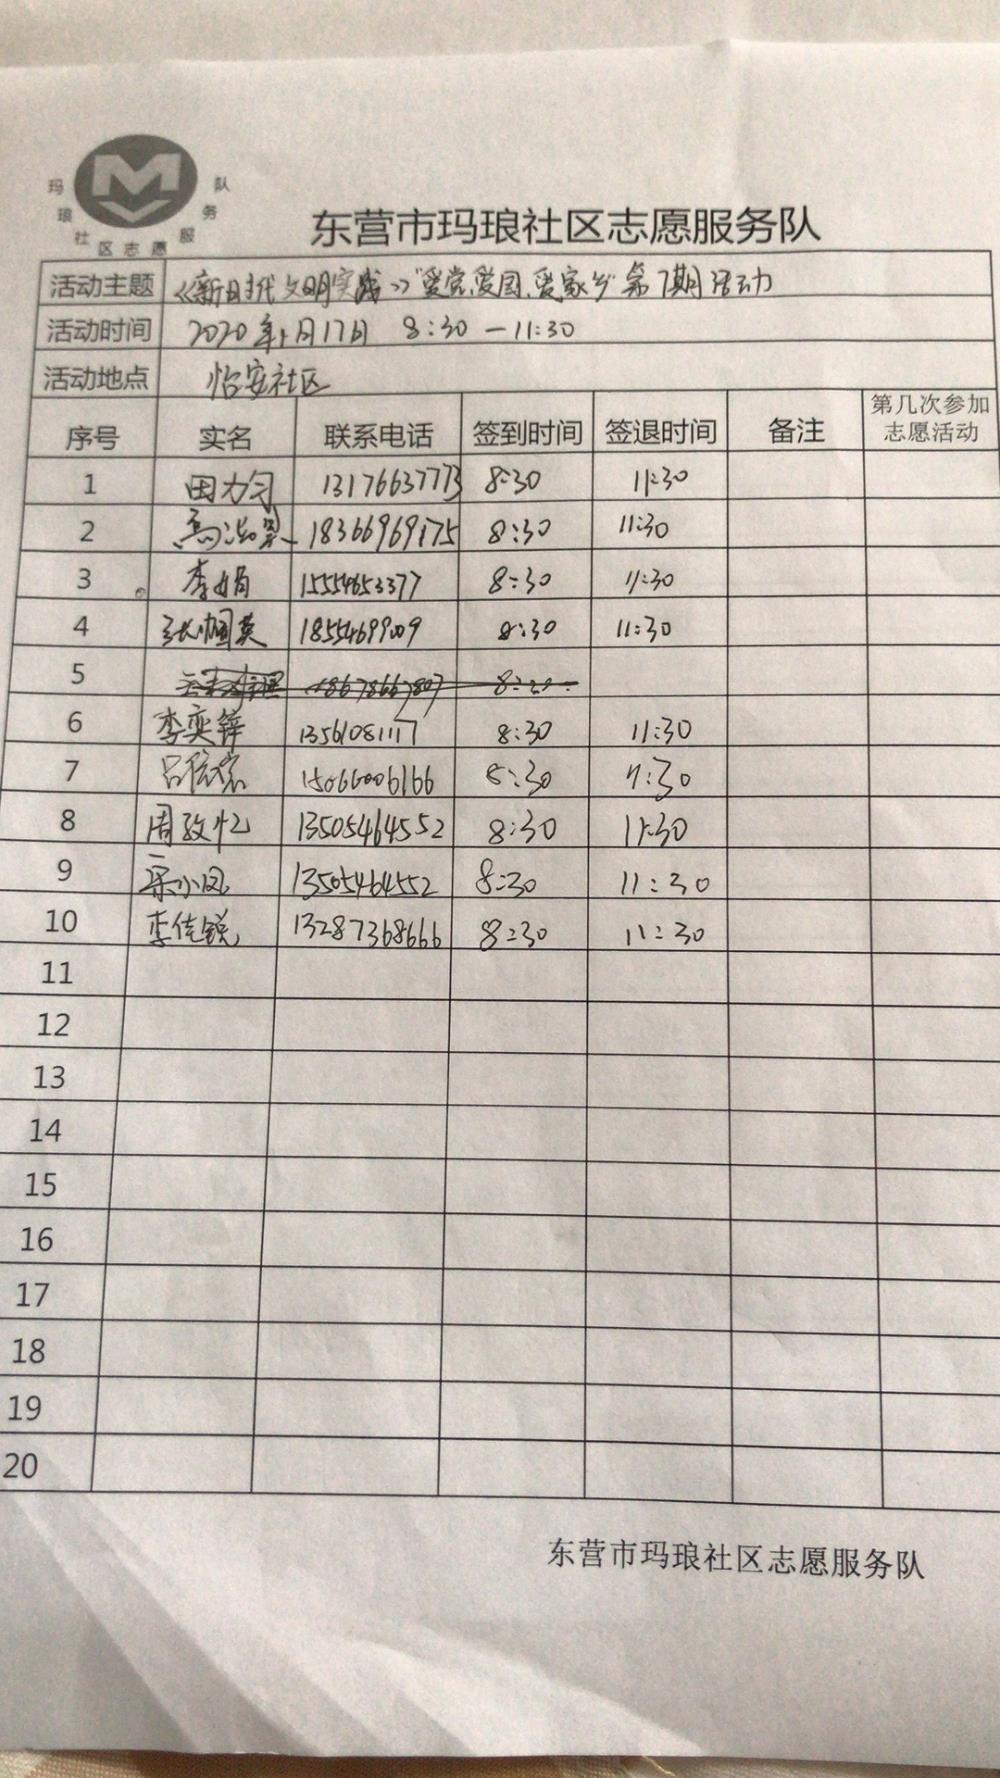 玛琅社区志愿服务队
东营市玛琅社区志愿服务队
活动主题 《新时代文明实践》"爱党、爱国、爱家乡"第7期活动
活动时间 2020年1月17日 8:30—11:30
活动地点 怡安社区
序号 实名 联系电话 签到时间 签退时间 备注 第几次参加志愿活动
1 田力匀 13176637773 8:30 11:30
2 18366969175 8:30 11:30
3 李娟 15554653377 8:30 11:30
4 张帼英 18554699009 8:30 11:30
5
6 李奕锋 13561081117 8:30 11:30
7 15066006166 8:30 11:30
8 周致忆 13505464552 8:30 11:30
9 宋小凤 13505464552 8:30 11:30
10 李佳锐 13287368666 8:30 11:30
11
12
13
14
15
16
17
18
19
20
东营市玛琅社区志愿服务队